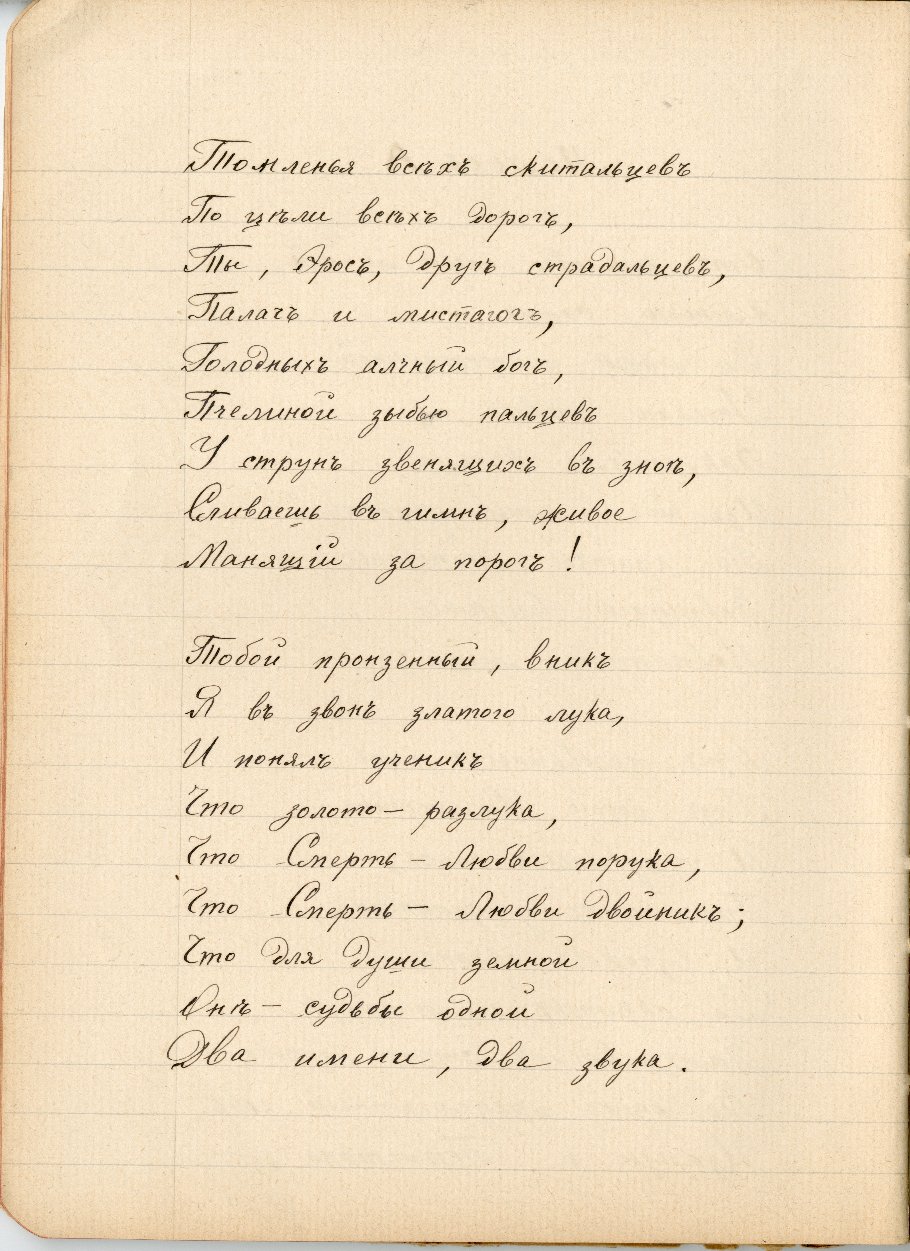 Томленья всѣхъ скитальцевъ
По цѣли всѣхъ дорогъ,
Ты, Эросъ, другъ страдальцевъ,
Палачъ и мистагогъ,
Голодныхъ алчный богъ,
Пчелиной зыбью пальцевъ
У струнъ звенящихъ въ зноѣ,
Сливаешь въ гимнъ, живое
Манящій за порогъ!

Тобой пронзенный, вникъ
Я въ звонъ златого лука,
И понялъ ученикъ
Что золото – разлука,
Что Смерть – Любви порука,
Что Смерть – Любви двойникъ;
Что для души земной
Онѣ – судьбы одной
Два имени, два звука.